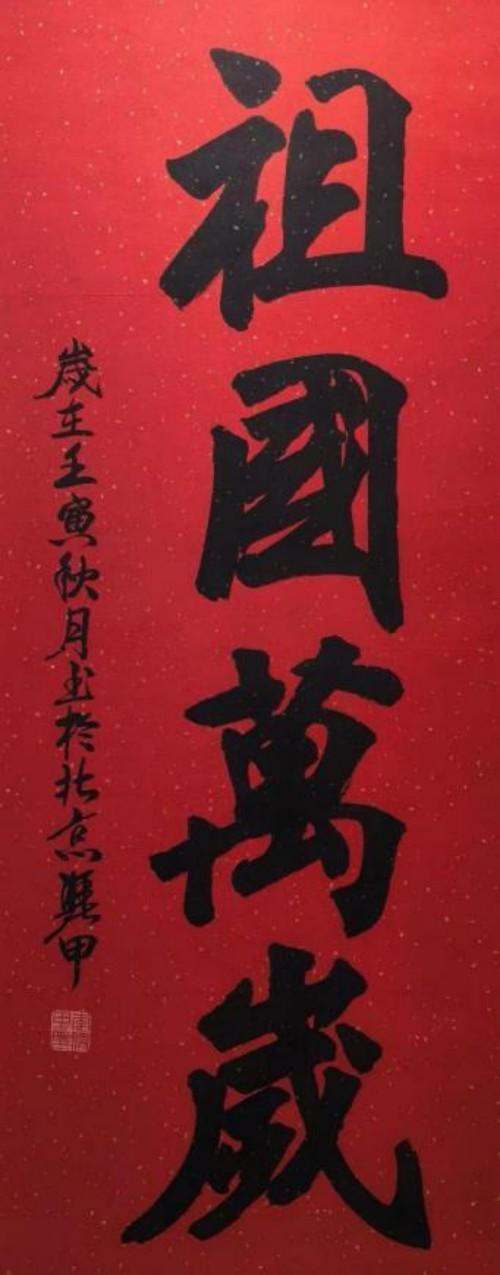 祖國萬歲
歲在壬寅秋月书於北京䮾甲